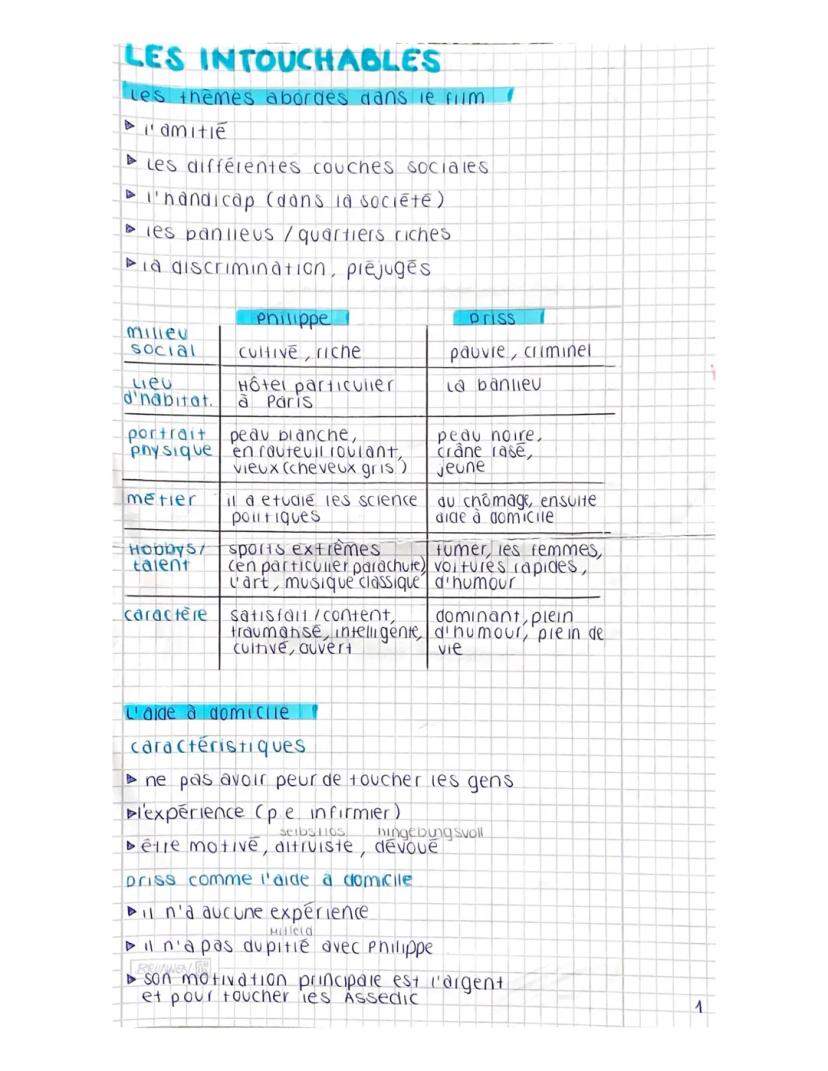 LES INTOUCHABLES
Les thèmes abordes dans le film
▷ l'amitié
▷ Les différentes couches sociales
▷ l'handicap (dans la société)
▷ les banlieus / quartiers riches
▷ la discrimination, préjugés
Philippe Driss
milieu social cultivé, riche pauvre, criminel
Lieu d'habitat. Hôtel particulier à Paris La banlieu
portrait physique peau blanche, en fauteuil roulant, vieux (cheveux gris) peau noire, crâne rasé, jeune
métier il a etudié les science politiques au chômage, ensuite aide à domicile
Hobbys/ talent sports extrêmes (en particulier parachute) l'art, musique classique fumer, les femmes, voitures rapides, d'humour
caractère satisfait / content, traumatisé, intelligente, cultivé, ouvert dominant, plein d'humour, plein de vie
L'aide à domicile
caractéristiques
▷ ne pas avoir peur de toucher les gens
▷ l'expérience (p.e. infirmier)
selbstlos hingebungsvoll
▷ être motivé, altruiste, dévoué
Driss comme l'aide à domicile
▷ il n'a aucune expérience
Mitleid
▷ il n'a pas dupitié avec Philippe
▷ son motivation principale est l'argent
et pour toucher les Assedic
1